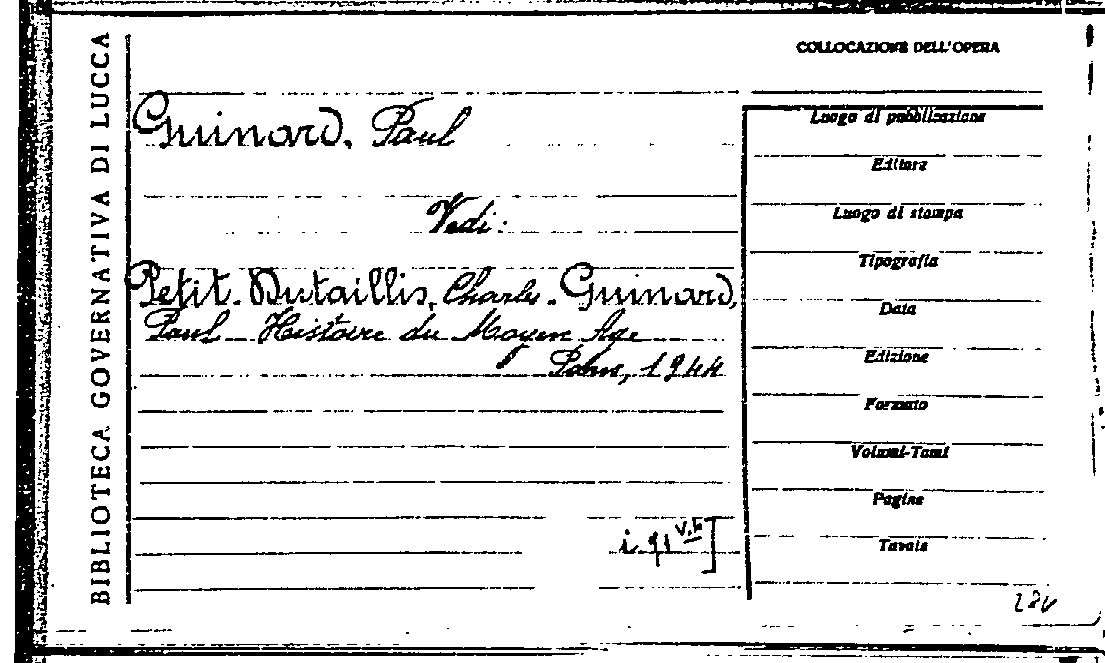 BIBLIOTECA GOVERNATIVA DI LUCCA
COLLOCAZIONE DELL'OPERA
Guinard, Paul
Vedi:
Petit-Dutaillis, Charles - Guinard,
Paul - Histoire du Moyen Age
Paris, 1944
Luogo di pubblicazione
Editore
Luogo di stampa
Tipografia
Data
Edizione
Formato
Volumi-Tomi
Pagine
Tavole